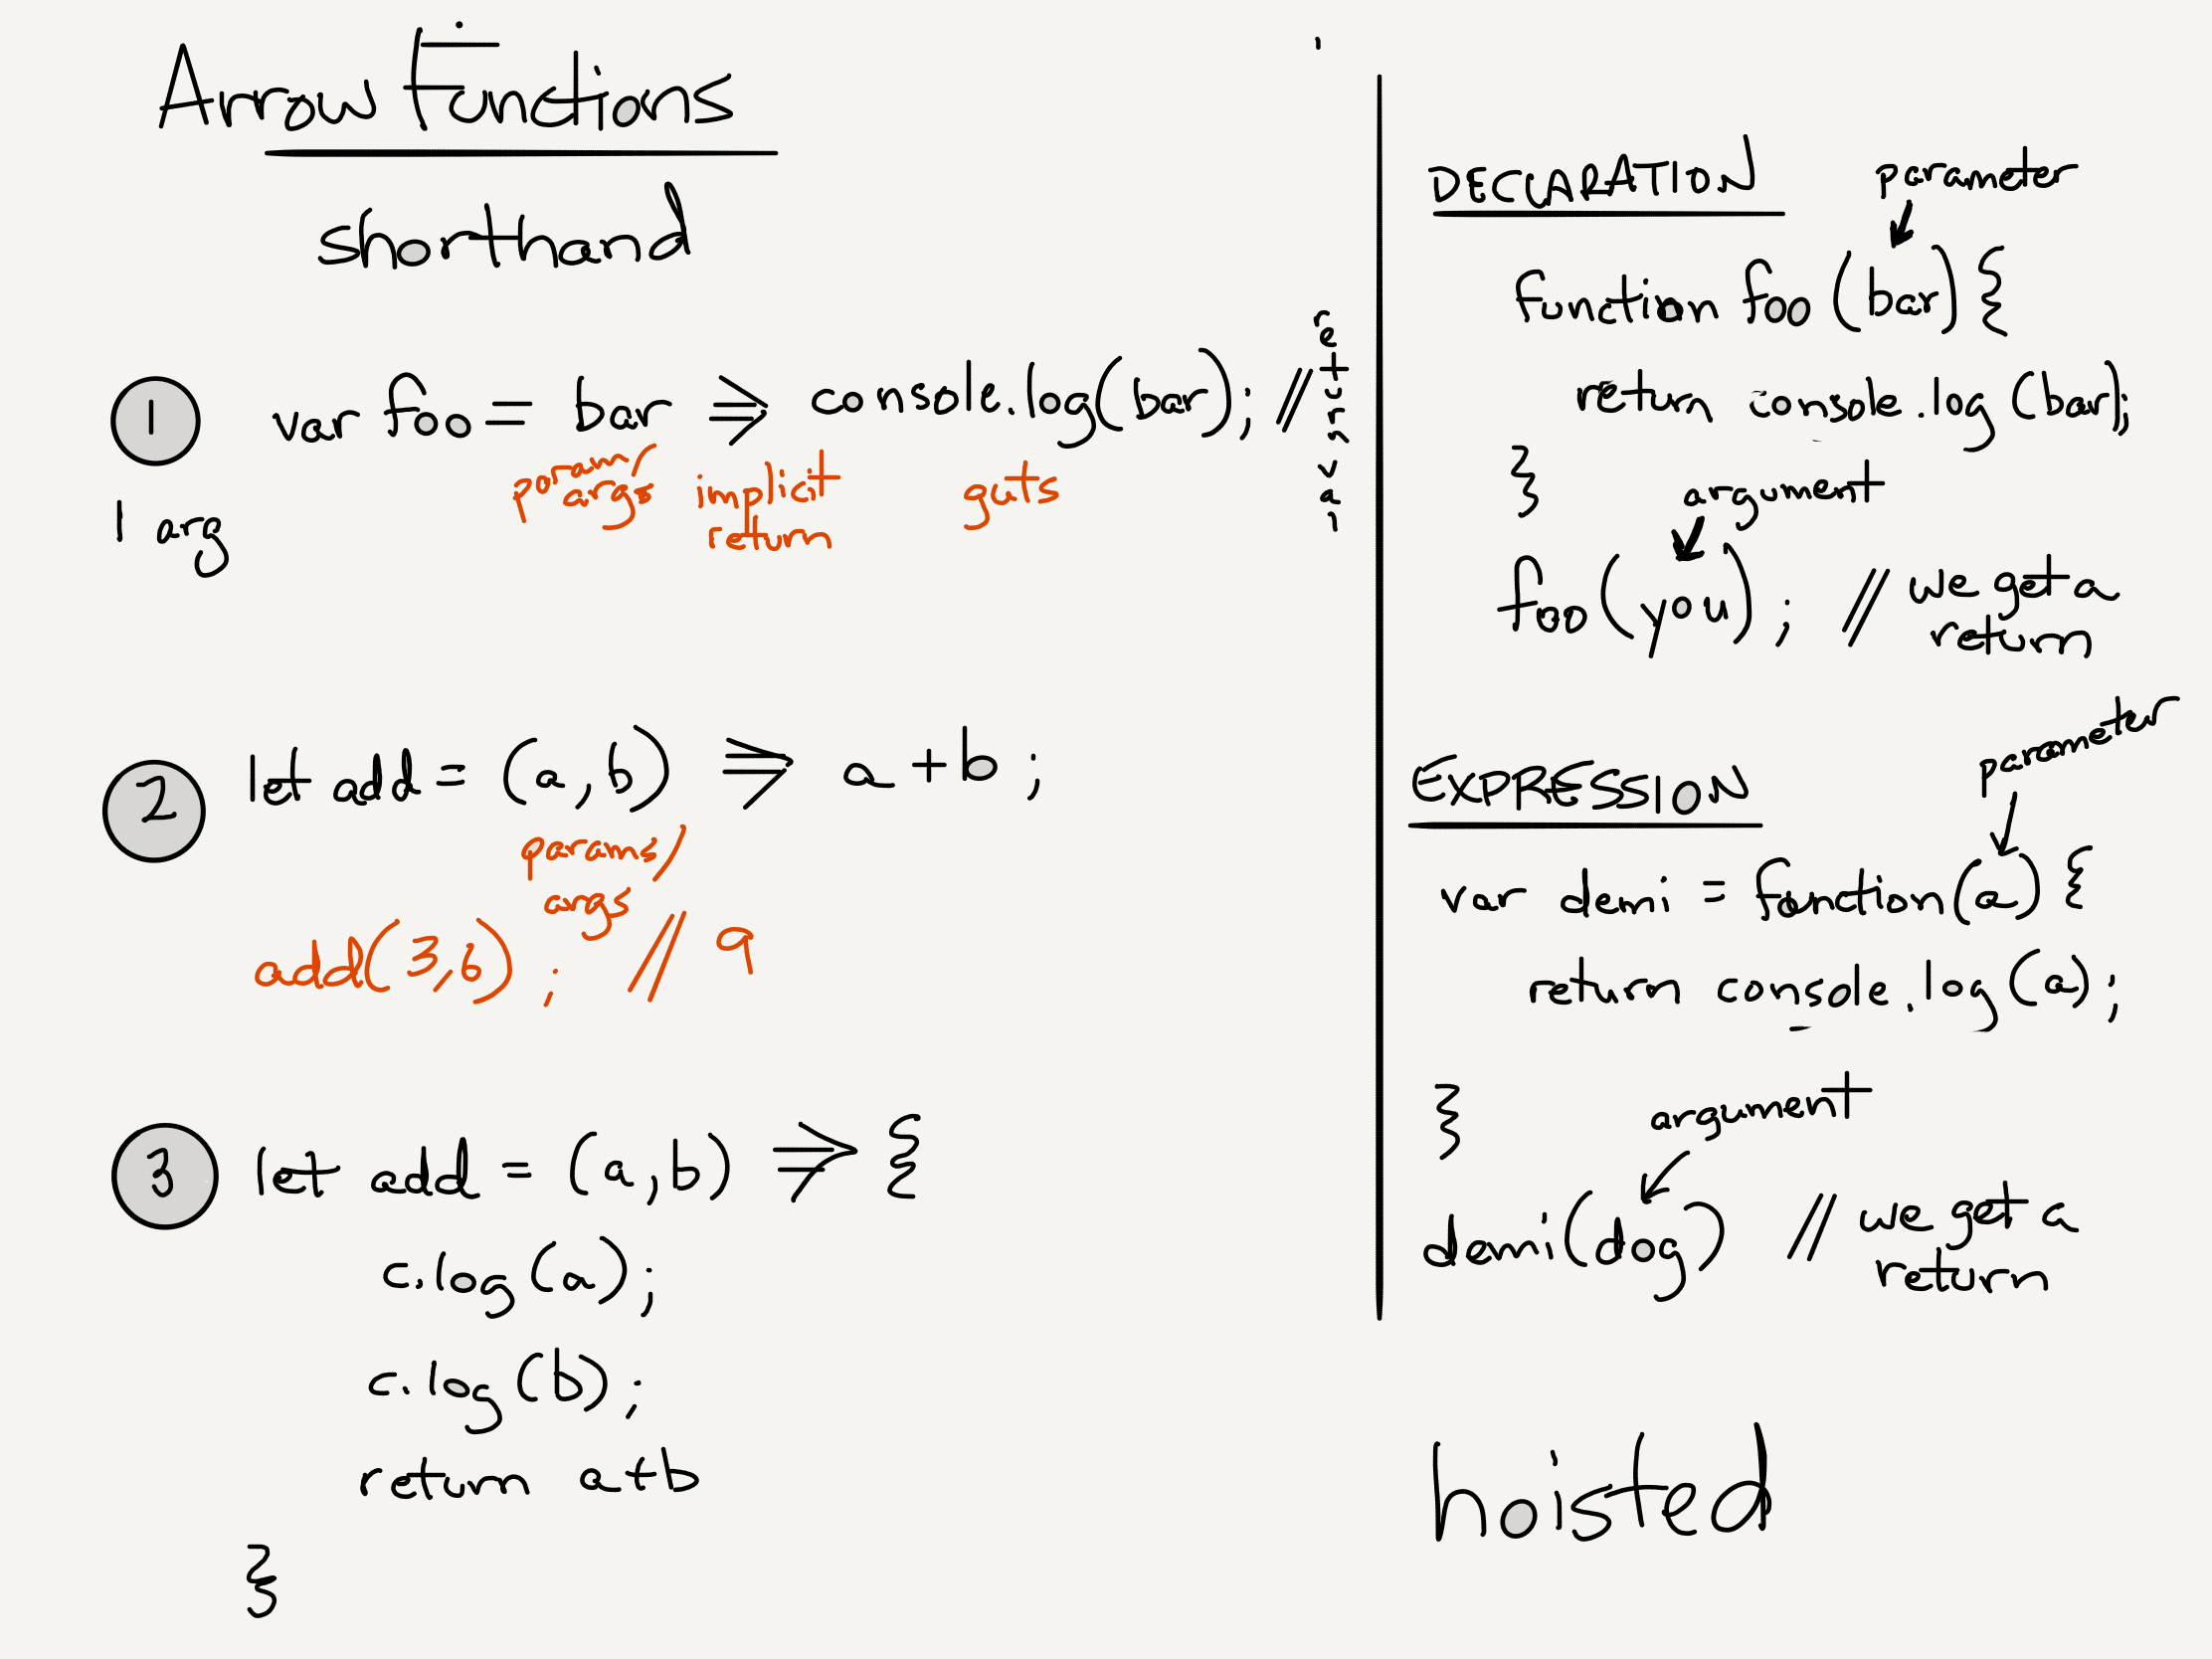 Arrow Functions
shorthand
1
var foo = bar => console.log(bar); // returns val
1 arg
param/
args
implicit
return
guts
2
let add = (a,b) => a + b ;
params/
args
add(3,6) ; // 9
3
let add = (a,b) => {
c.log(a);
c.log(b);
return a+b
}
DECLARATION
parameter
function foo (bar) {
return console.log (bar);
}
argument
foo(you) ; // we get a
return
EXPRESSION
parameter
var demi = function(a) {
return console.log(a);
}
argument
demi(dog) // we get a
return
hoisted